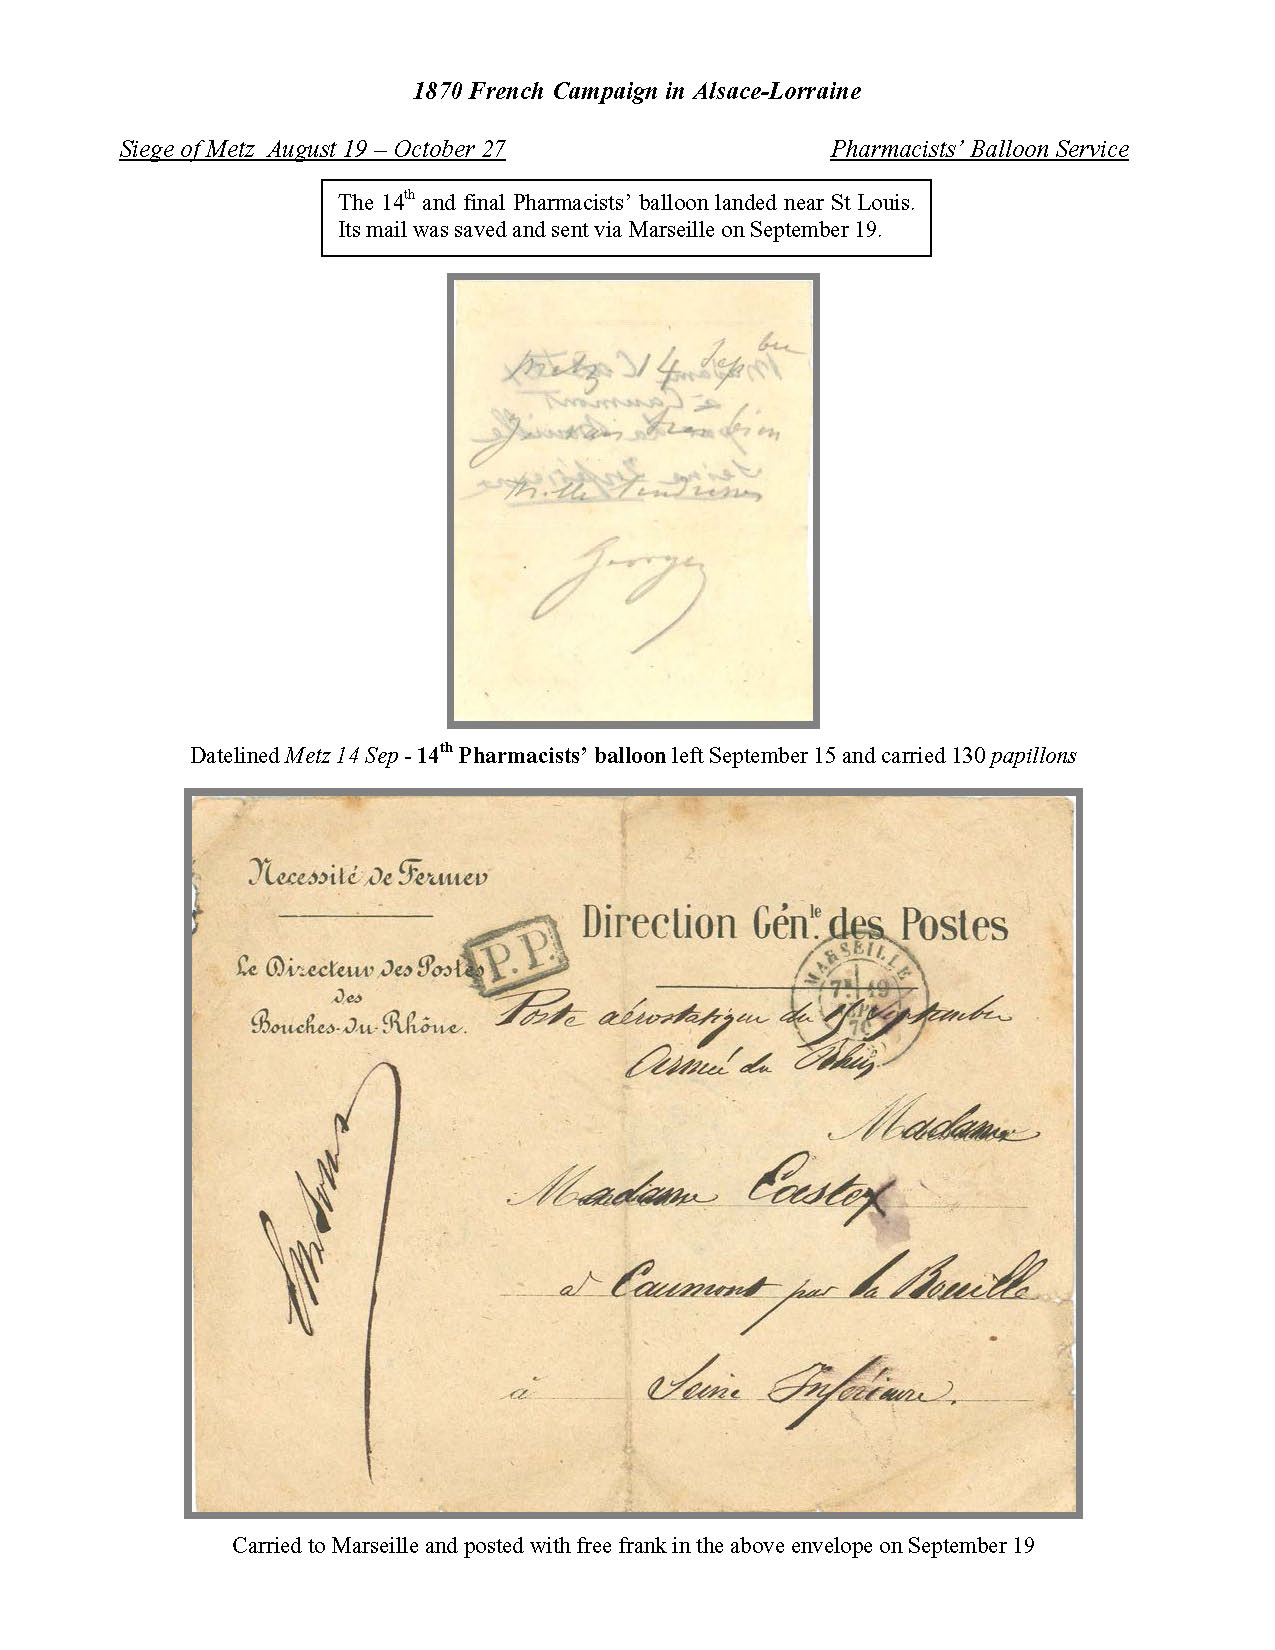 1870 French Campaign in Alsace-Lorraine
Siege of Metz August 19 – October 27
Pharmacists' Balloon Service
The 14th and final Pharmacists' balloon landed near St Louis.
Its mail was saved and sent via Marseille on September 19.
Metz 14 Sepbre
Je vais tres bien
Mille tendresses
Georges
Datelined Metz 14 Sep - 14th Pharmacists' balloon left September 15 and carried 130 papillons
Necessité de Fermer
Direction Génle. des Postes
P.P.
MARSEILLE
19
SEPT.
70
Le Directeur des Postes
des
Bouches-du-Rhône.
Poste aérostatique du 15 Septembre
Armée du Rhin
Madame
Madame Castex
à Caumont par la Bouille
à Seine Inférieure.
Carried to Marseille and posted with free frank in the above envelope on September 19